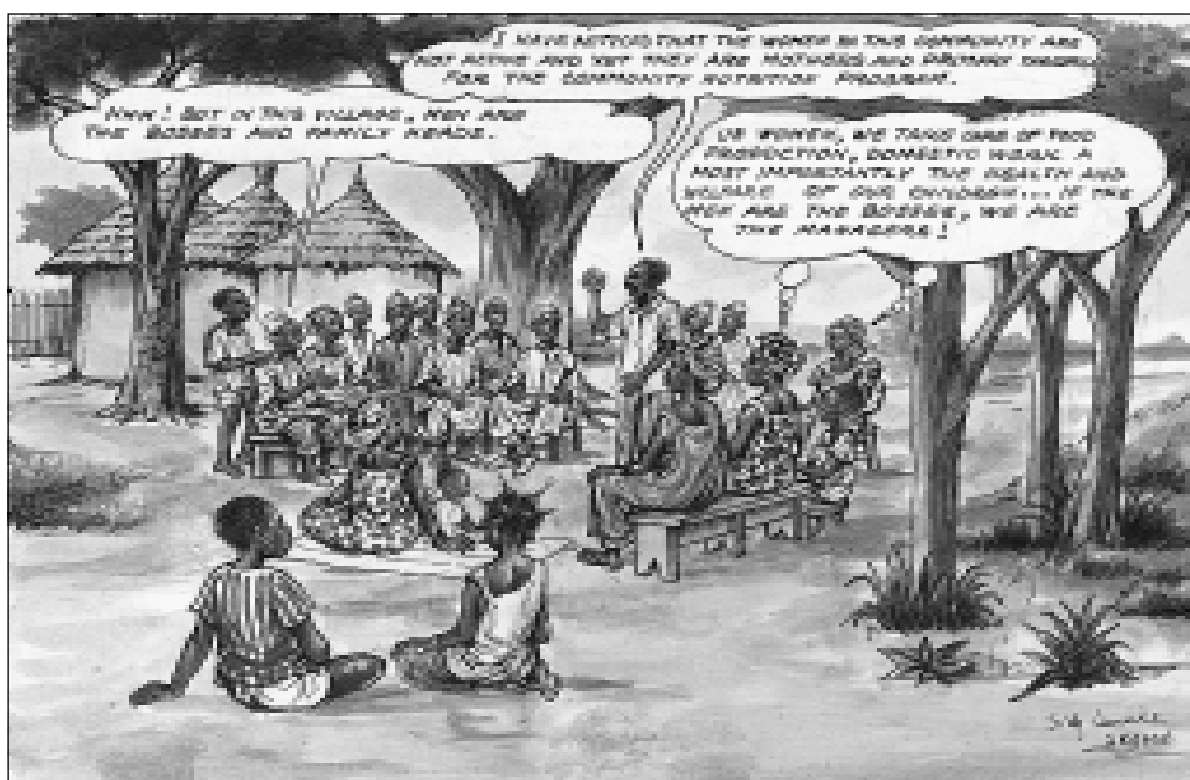 I HAVE NOTICED THAT THE WOMEN IN THIS COMMUNITY ARE
NOT ACTIVE AND YET THEY ARE MOTHERS AND PRIMARY
FOR THE COMMUNITY NUTRITION PROGRAM.
HMM! BUT IN THIS VILLAGE, MEN ARE
THE BOSSES AND FAMILY HEADS.
US WOMEN, WE TAKE CARE OF FOOD
PRODUCTION, DOMESTIC WORK &
MOST IMPORTANTLY THE HEALTH AND
WELFARE OF OUR CHILDREN... IF THE
MEN ARE THE BOSSES, WE ARE
THE MANAGERS!